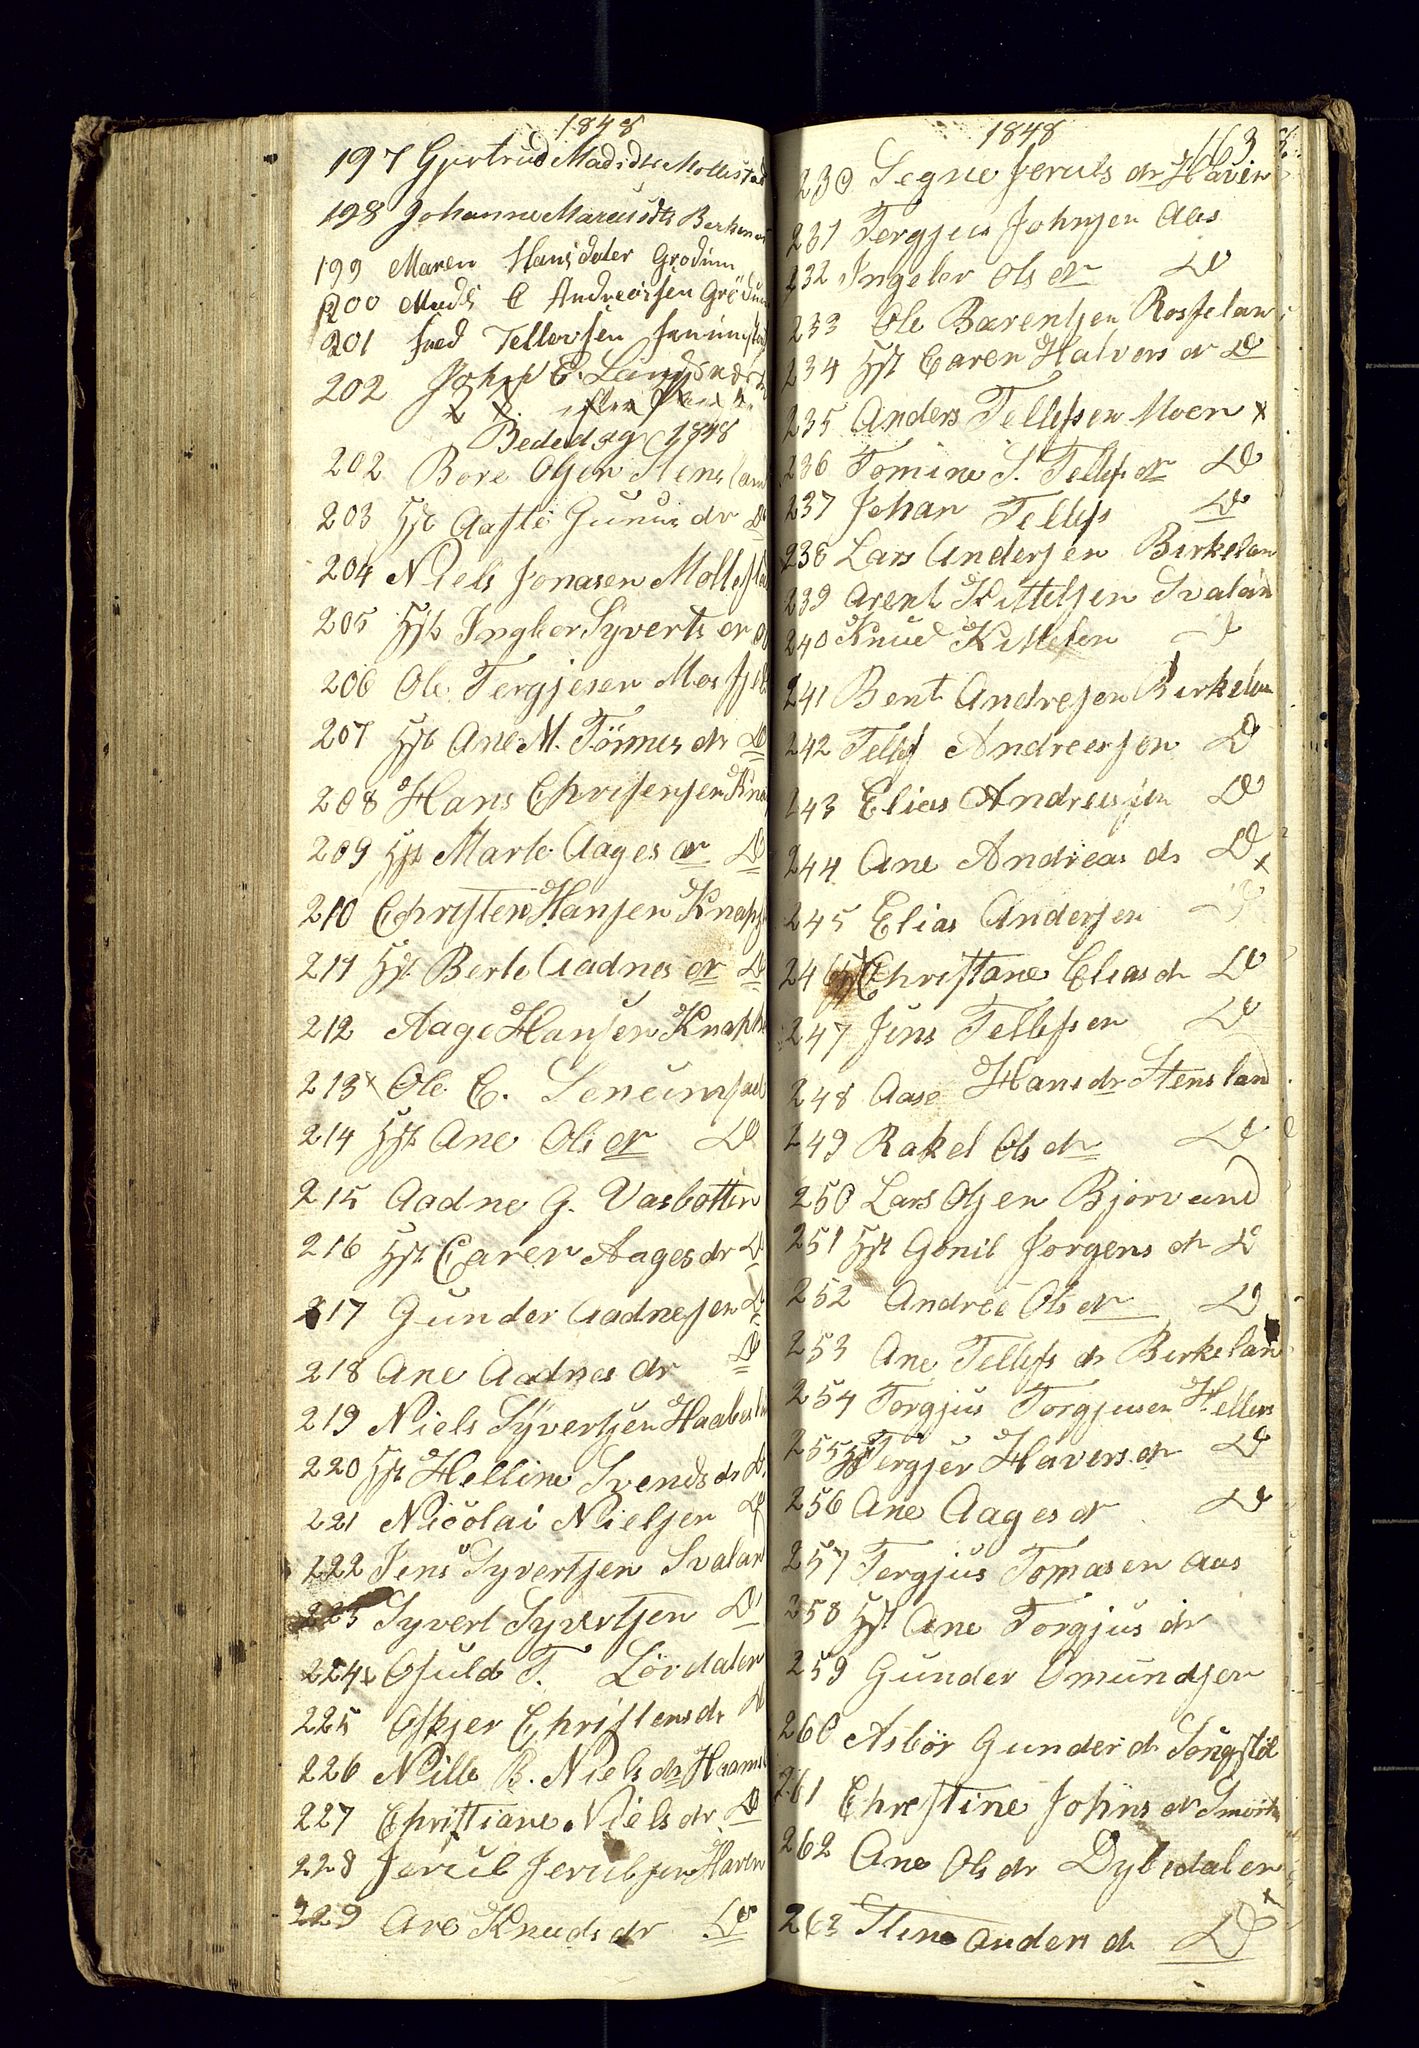 1848
197 Gjertrud Madsdtr Mollestad
198 Johanne Mareusdtr Berkene
199 Maren Hansdater Grødum
200 Mads C Andreassen Grødum
201 Tellefsen
202 John C.
Bededag 1848
202 Bore Olsen Stensland
203 Hst Aaste Gunus dr Do
204 Niels Jonasen Mollesta
205 Hst Ingbor Syverts dr
206 Ole Tergjesen Mosfjel
207 Hst Ane M. Tønnes dr Do
208 Hans Chrisensen Kna
209 Hst Marte Aages dr Do
210 Christen Hansen Knap
211 Hst Berte Aadnes dr Do
212 Aage Hansen Knaphe
213 x Ole C. Seneumsae
214 Hst Ane Ols dr Do
215 Aadne G. Vasbotten
216 Hst Caren Aages dr Do
217 Gunder Aadnesen Do
218 Ane Aadnes dr Do
219 Niels Syvertsen Haabesla
220 Hst Helline Svends dr Do
221 Nicolai Nielsen Do
222 Jens Syvertsen Svalan
223 Syvert Syvertsen Do
224 x Osuld T. Lördalen
225 Askjer Christens dr Do
226 Nille B. Niels dr Haams
227 Christiane Niels dr Do
228 Jerul Jerulsen Haven
229 Ane Knuds dr Do
1848 163
230 Segne Jeruls dr Haven
231 Tergjus Johnsen Aas
232 Ingeber Ols dr Do
233 Ole Barentsen Rosselan
234 Hst Caren Halvors dr Do
235 Anders Tellefsen Moen x
236 Tomine S. Tellefs dr Do
237 Johan Tellefs Do
238 Lars Andersen Birkelan
239 Arent Kittelsen Svalan
240 Knud Kittelsen Do
241 Bent Andresen Birkelan
242 Tellef Andreassen Do
243 Elias Andreassen Do
244 Ane Andreas dr Do x
245 Elias Andersen Do
246 Hst Christane Elias dr Do
247 Jens Tellefsen Do
248 Aase Hans dr Stensland
249 Rakel Ols dr Do
250 Lars Olsen Bjorvand
251 Hst Gonil Jorgens dr Do
252 Andree Ols dr Do
253 Ane Tellefs dr Berkelan
254 Torgjus Torgjusen Hellers
255 Hst Tergjer Havers dr Do
256 Ane Aages dr Do
257 Tergjus Tomasen Aas
258 Hst Ane Torgjus dr
259 Gunder Omundsen
260 Asbör Gunder dr Songstöl
261 Chrestine Johns dr Smørk
262 Ane Ols dr Dybedalen
263 Stine Anders dr Do x